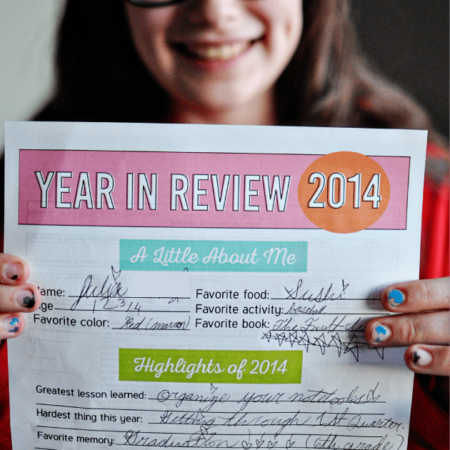 YEAR IN REVIEW 2014
A Little About Me
ame: Julia Favorite food: Sushi
ge Favorite activity: baseball
Favorite color: Red (maroon) Favorite book: The
Highlights of 2014
Greatest lesson learned: Organize your notebooks
Hardest thing this year: Getting through 1st Quarter.
Favorite memory: Graduation (6th grade)